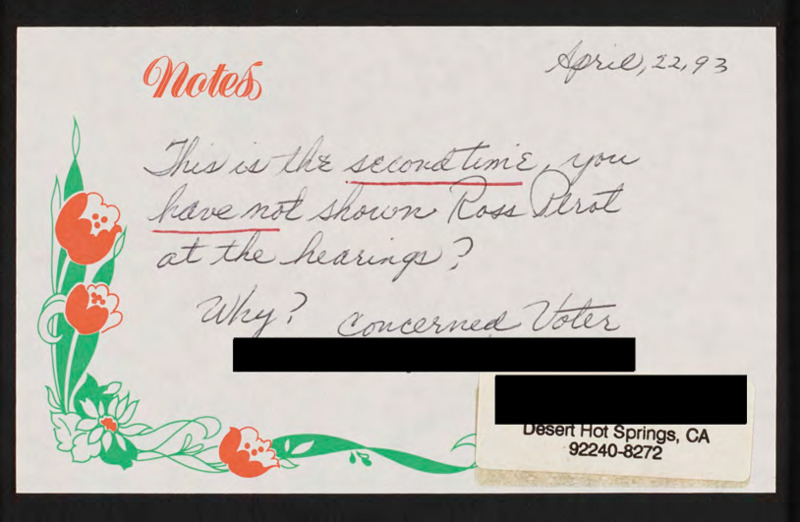 Notes
April, 22, 93
This is the second time, you
have not shown Ross Perot
at the hearings?
Why? Concerned Voter
Desert Hot Springs, CA
92240-8272